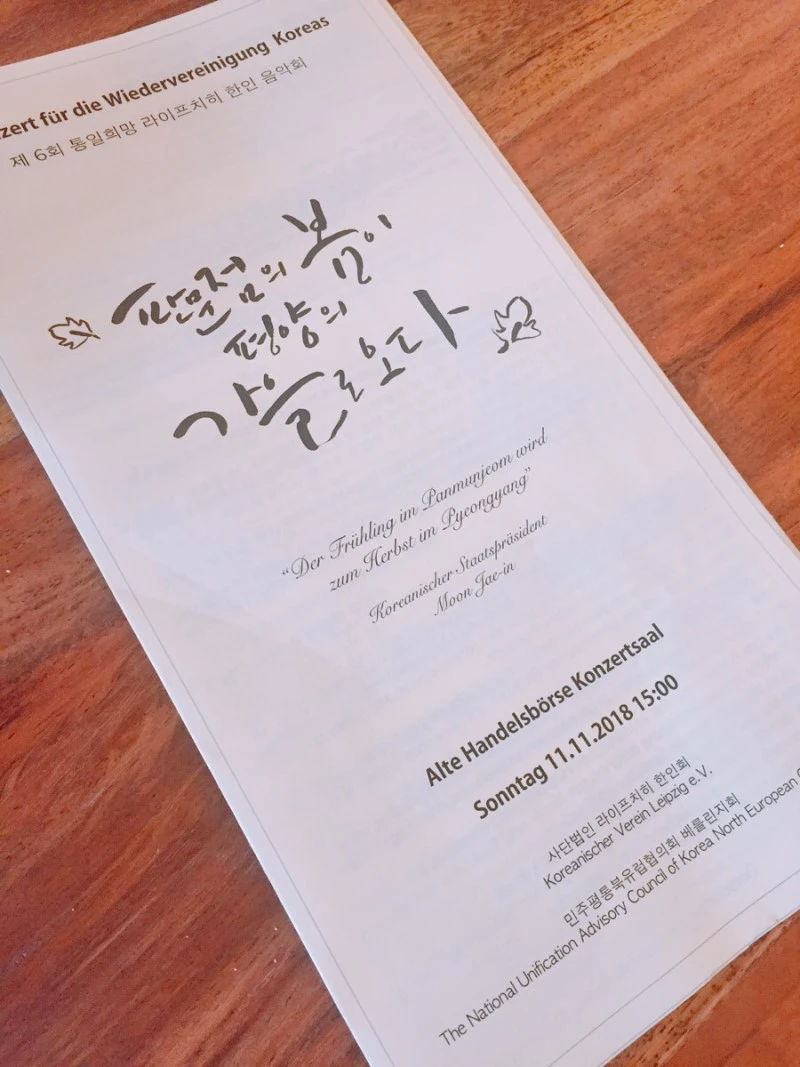 für die Wiedervereinigung Koreas
제 6회 통일희망 라이프치히 한인 음악회
판문점의 봄이
평양의
가을로 오다
“Der Frühling im Panmunjeom wird
zum Herbst im Pyeongyang”
Koreanischer Staatspräsident
Moon Jae-in
Alte Handelsbörse Konzertsaal
Sonntag 11.11.2018 15:00
사단법인 라이프치히 한인회
Koreanischer Verein Leipzig e.V.
민주평통북유럽협의회 베를린지회
The National Unification Advisory Council of Korea North European